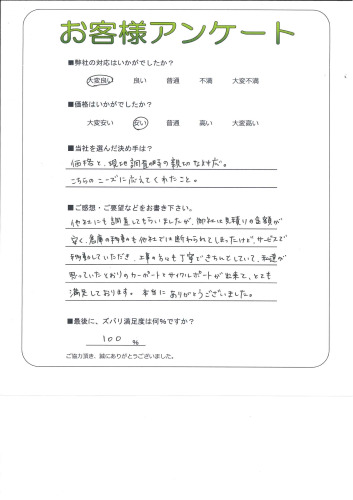 お客様アンケート
■弊社の対応はいかがでしたか?
大変良い 良い 普通 不満 大変不満
■価格はいかがでしたか?
大変安い 安い 普通 高い 大変高い
■当社を選んだ決め手は?
価格と、現地調査時の親切な対応。
こちらのニーズに応えてくれたこと。
■ご感想・ご要望などをお書き下さい。
他社にも調査してもらいましたが、御社は見積りの金額が
安く、倉庫の移動も他社では断わられてしまったけど、サービスで
移動していただき、工事の方も丁寧できちんとしていて、私達が
思っていたとおりのカーポートとサイクルポートが出来て、とても
満足しております。本当にありがとうございました。
■最後に、ズバリ満足度は何%ですか?
100 %
ご協力頂き、誠にありがとうございました。